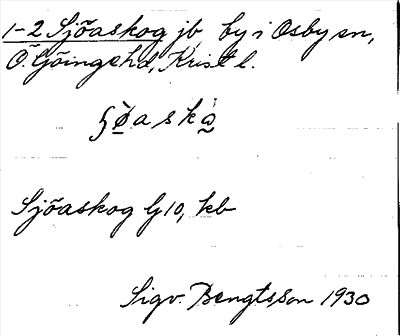 1-2 Sjöaskog jb, by i Osby sn,
Ö. Göinge hd, Krist l.
Sjöaskog G10, kb
Sigv. Bengtsson 1930